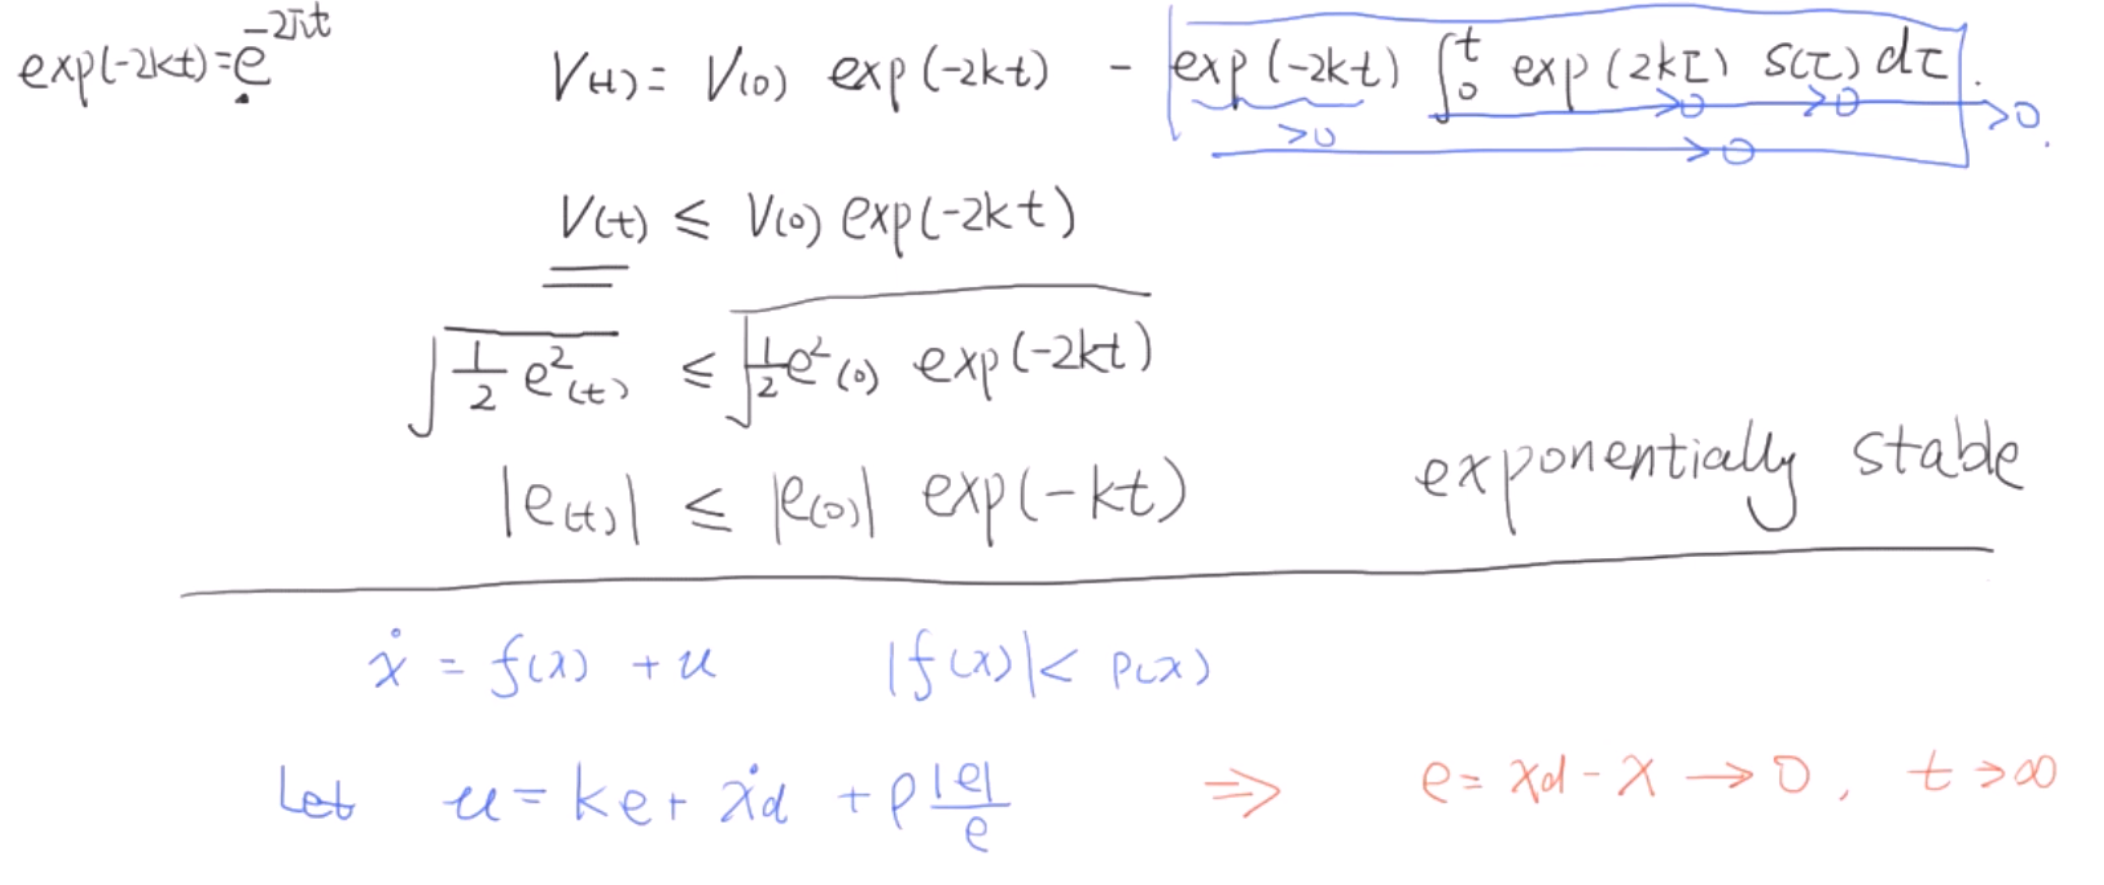 exp(-2kt)=e^{-2πt}
V(t)= V(0) exp(-2kt) - exp(-2kt) ∫_0^t exp(2kτ) s(τ) dτ.
>0 >0 >0 >0 >0.
V(t) ≤ V(0) exp(-2kt)
√(1/2 e²(t)) ≤ √(1/2 e²(0) exp(-2kt))
|e(t)| ≤ |e(0)| exp(-kt) exponentially stable
ẋ = f(x) + u |f(x)| < ρ(x)
Let u = ke + ẋd + ρ |e|/e ⇒ e = xd - x → 0, t → ∞